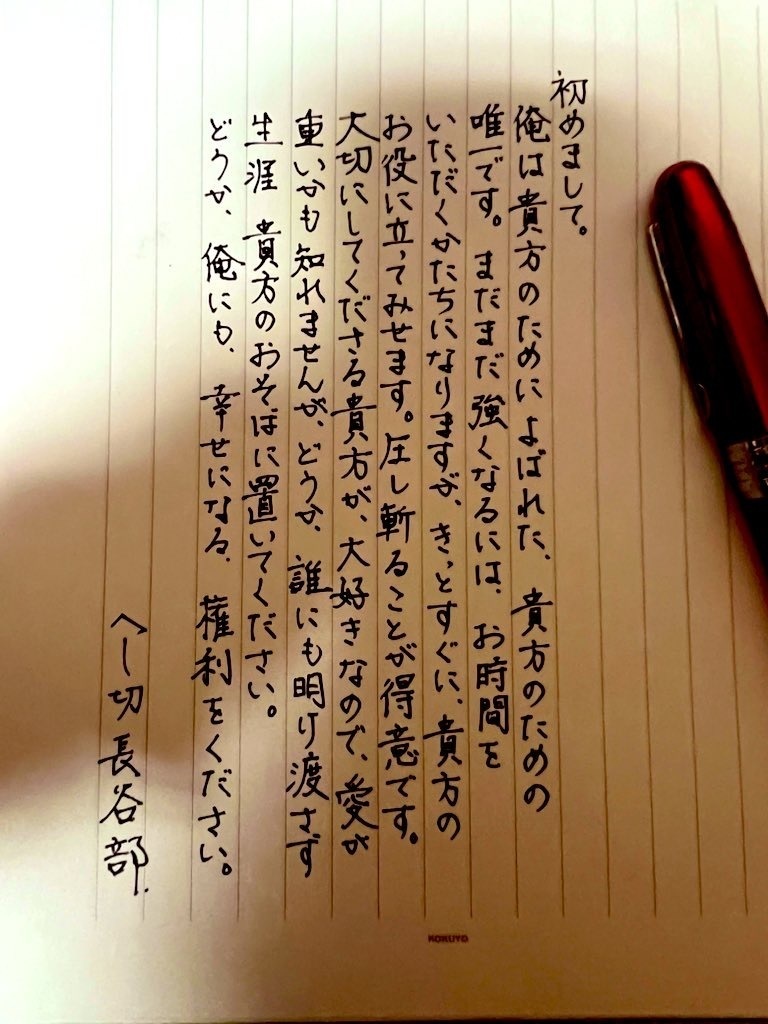 初めまして。
俺は貴方のためによばれた、貴方のための
唯一です。まだまだ強くなるには、お時間を
いただくかたちになりますが、きっとすぐに、貴方の
お役に立ってみせます。圧し斬ることが得意です。
大切にしてくださる貴方が、大好きなので、愛が
重いかも知れませんが、どうか、誰にも明け渡さず
生涯 貴方のおそばに置いてください。
どうか、俺にも、幸せになる、権利をください。
へし切長谷部
KOKUYO